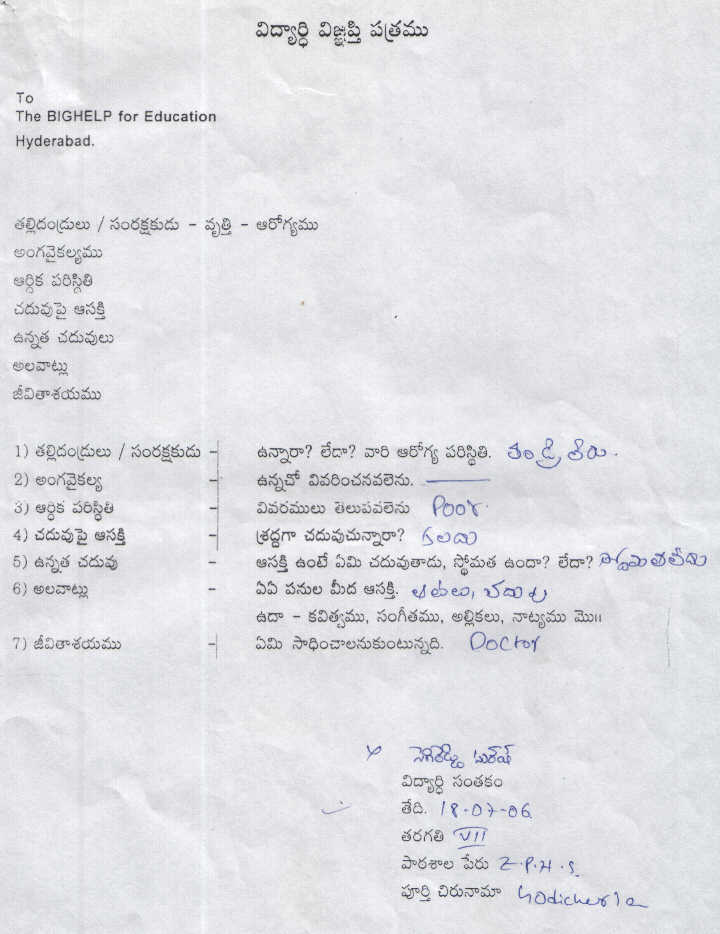 విద్యార్ధి విజ్ఞప్తి పత్రము
To
The BIGHELP for Education
Hyderabad.
తల్లిదండ్రులు / సంరక్షకుడు - వృత్తి - ఆరోగ్యము
అంగవైకల్యము
ఆర్ధిక పరిస్థితి
చదువుపై ఆసక్తి
ఉన్నత చదువులు
అలవాట్లు
జీవితాశయము
1) తల్లిదండ్రులు / సంరక్షకుడు - ఉన్నారా? లేదా? వారి ఆరోగ్య పరిస్థితి.
2) అంగవైకల్య - ఉన్నచో వివరించనవలెను.
3) ఆర్ధిక పరిస్థితి - వివరములు తెలుపవలెను Poor.
4) చదువుపై ఆసక్తి - శ్రద్ధగా చదువుచున్నారా? కలదు
5) ఉన్నత చదువు - ఆసక్తి ఉంటే ఏమి చదువుతాడు, స్థోమత ఉందా? లేదా? స్థోమత లేదు
6) అలవాట్లు - ఏఏ పనుల మీద ఆసక్తి.
ఉదా - కవిత్వము, సంగీతము, అల్లికలు, నాట్యము మొ॥
7) జీవితాశయము - ఏమి సాధించాలనుకుంటున్నది. Doctor
విద్యార్ధి సంతకం
తేది. 18-07-06
తరగతి VII
పాఠశాల పేరు Z.P.H.S.
పూర్తి చిరునామా Godicherla